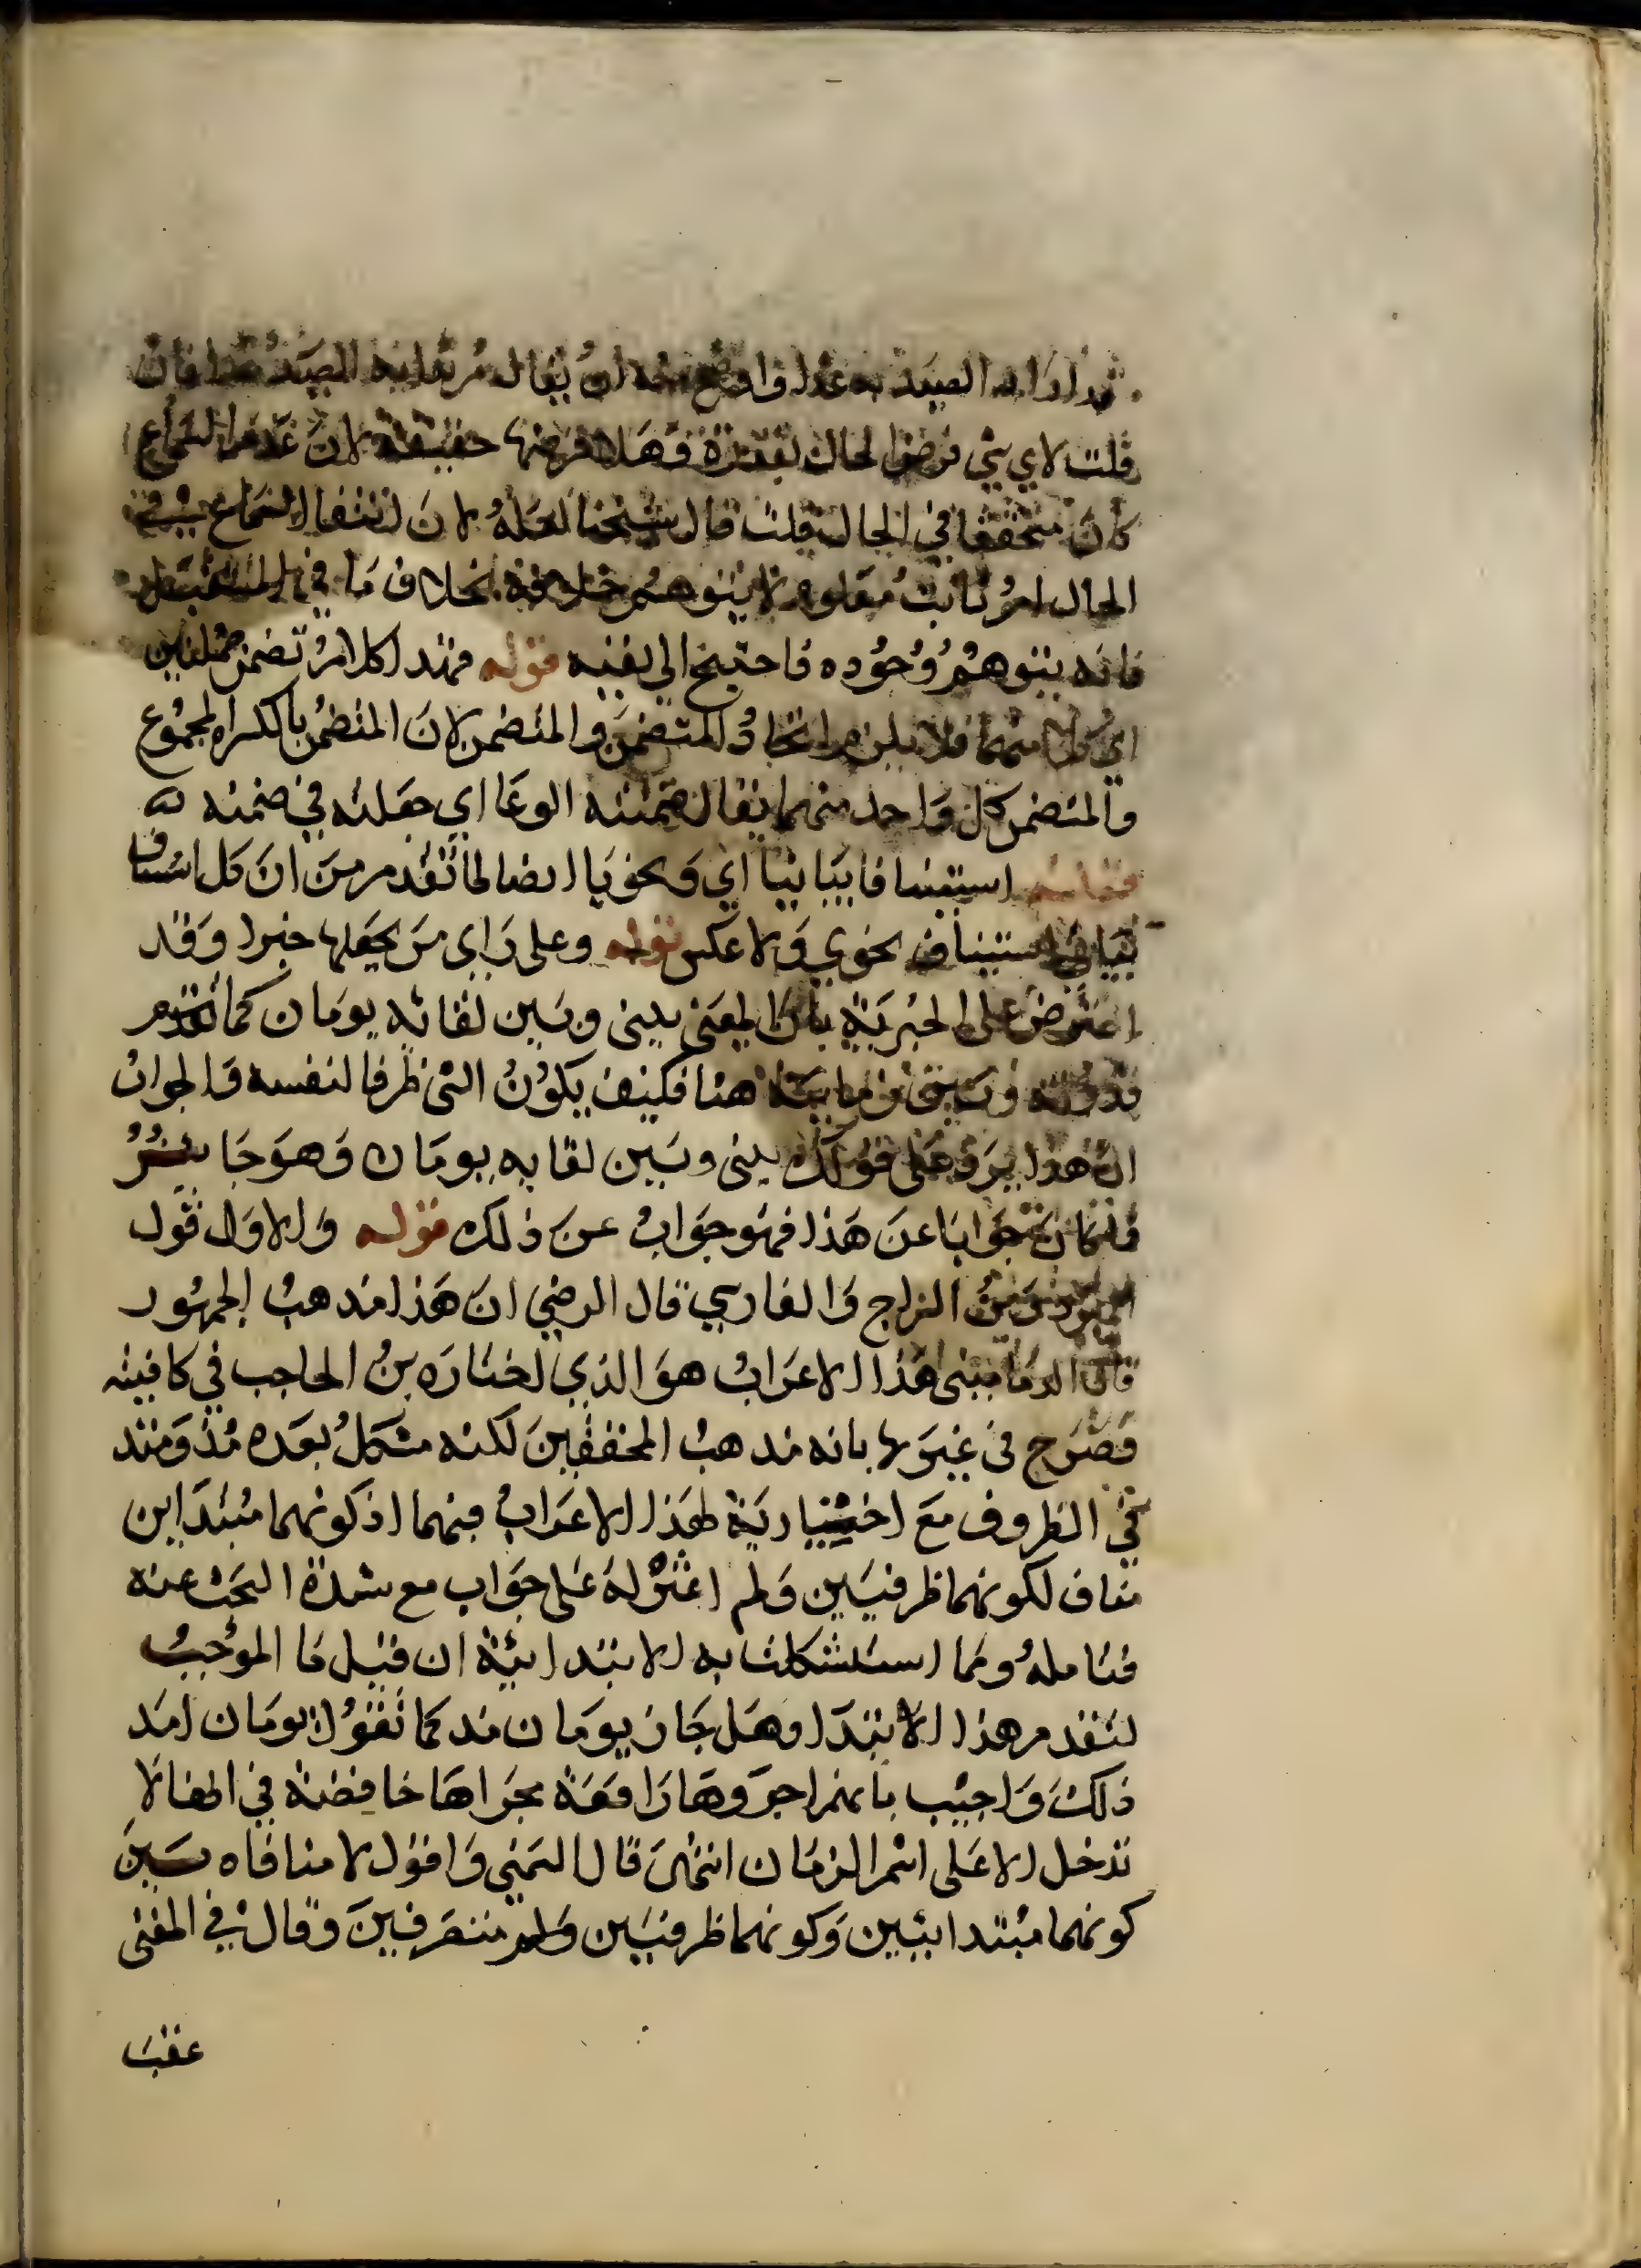 الصيد به غدا واوضح منه ان يقال مريدا به الصيد غدا فان
قلت لاي شي فرضوا الحال مقدرة وهلا فرضها حقيقة لان عدم السماع
كان متحققا في الحال قلت قال شيخنا لعله لان انتفا السماع في
الحال امر ثابت معلوم لا يتوهم خلافه بخلاف ما في المستقبل
فانه يتوهم وجوده فاحتيج الى نفيه قوله فهذا كلام تضمن جملتين
اي كل منهما فلا يلزم اتحاد المتضمن والمتضمن لان المتضمن بالكسر المجموع
والمتضمن كل واحد منهما يقال ضمنته الوعا اي جعلته في ضمنه
استينافا بيانيا اي ونحويا ايضا لما تقدم من ان كل استيناف
بياني استيناف نحوي ولا عكس قوله وعلى راي من يجعلها خبرا وقد
اعترض على الخبرية بان المعنى بيني وبين لقائه يومان كما تقدم
هنا فكيف يكون الشي ظرفا لنفسه والجواب
ان هذا يرد على قولك بيني وبين لقايه يومان وهو جايز
فما كان جوابا عن هذا فهو جواب عن ذلك قوله والاول قول
المبرد من الزجاج والفارسي قال الرضي ان هذا مذهب الجمهور
قال الدماميني هذا الاعراب هو الذي اختاره بن الحاجب في كافيته
وصرح في غيرها بانه مذهب المحققين لكنه مشكل بعده مذ ومنذ
في الظروف مع اختياريه لهذا الاعراب فيهما اذ كونهما مبتداين
مناف لكونهما ظرفيين ولم اعثر له على جواب مع شدة البحث عنه
فتامله ومما استشكلت به الابتدائية ان قيل ما الموجب
لتقدم هذا الابتدا وهل جاز يومان منذ كما تقول يومان امد
ذلك واجيب بانهم اجروها رافعة مجراها خافضة في انها لا
تدخل الا على اسم الزمان انتهى قال الشمني واقول لا منافاه بين
كونهما مبتدايين وكونهما ظرفيين ولم متصرفين وقال في المغني
عقب